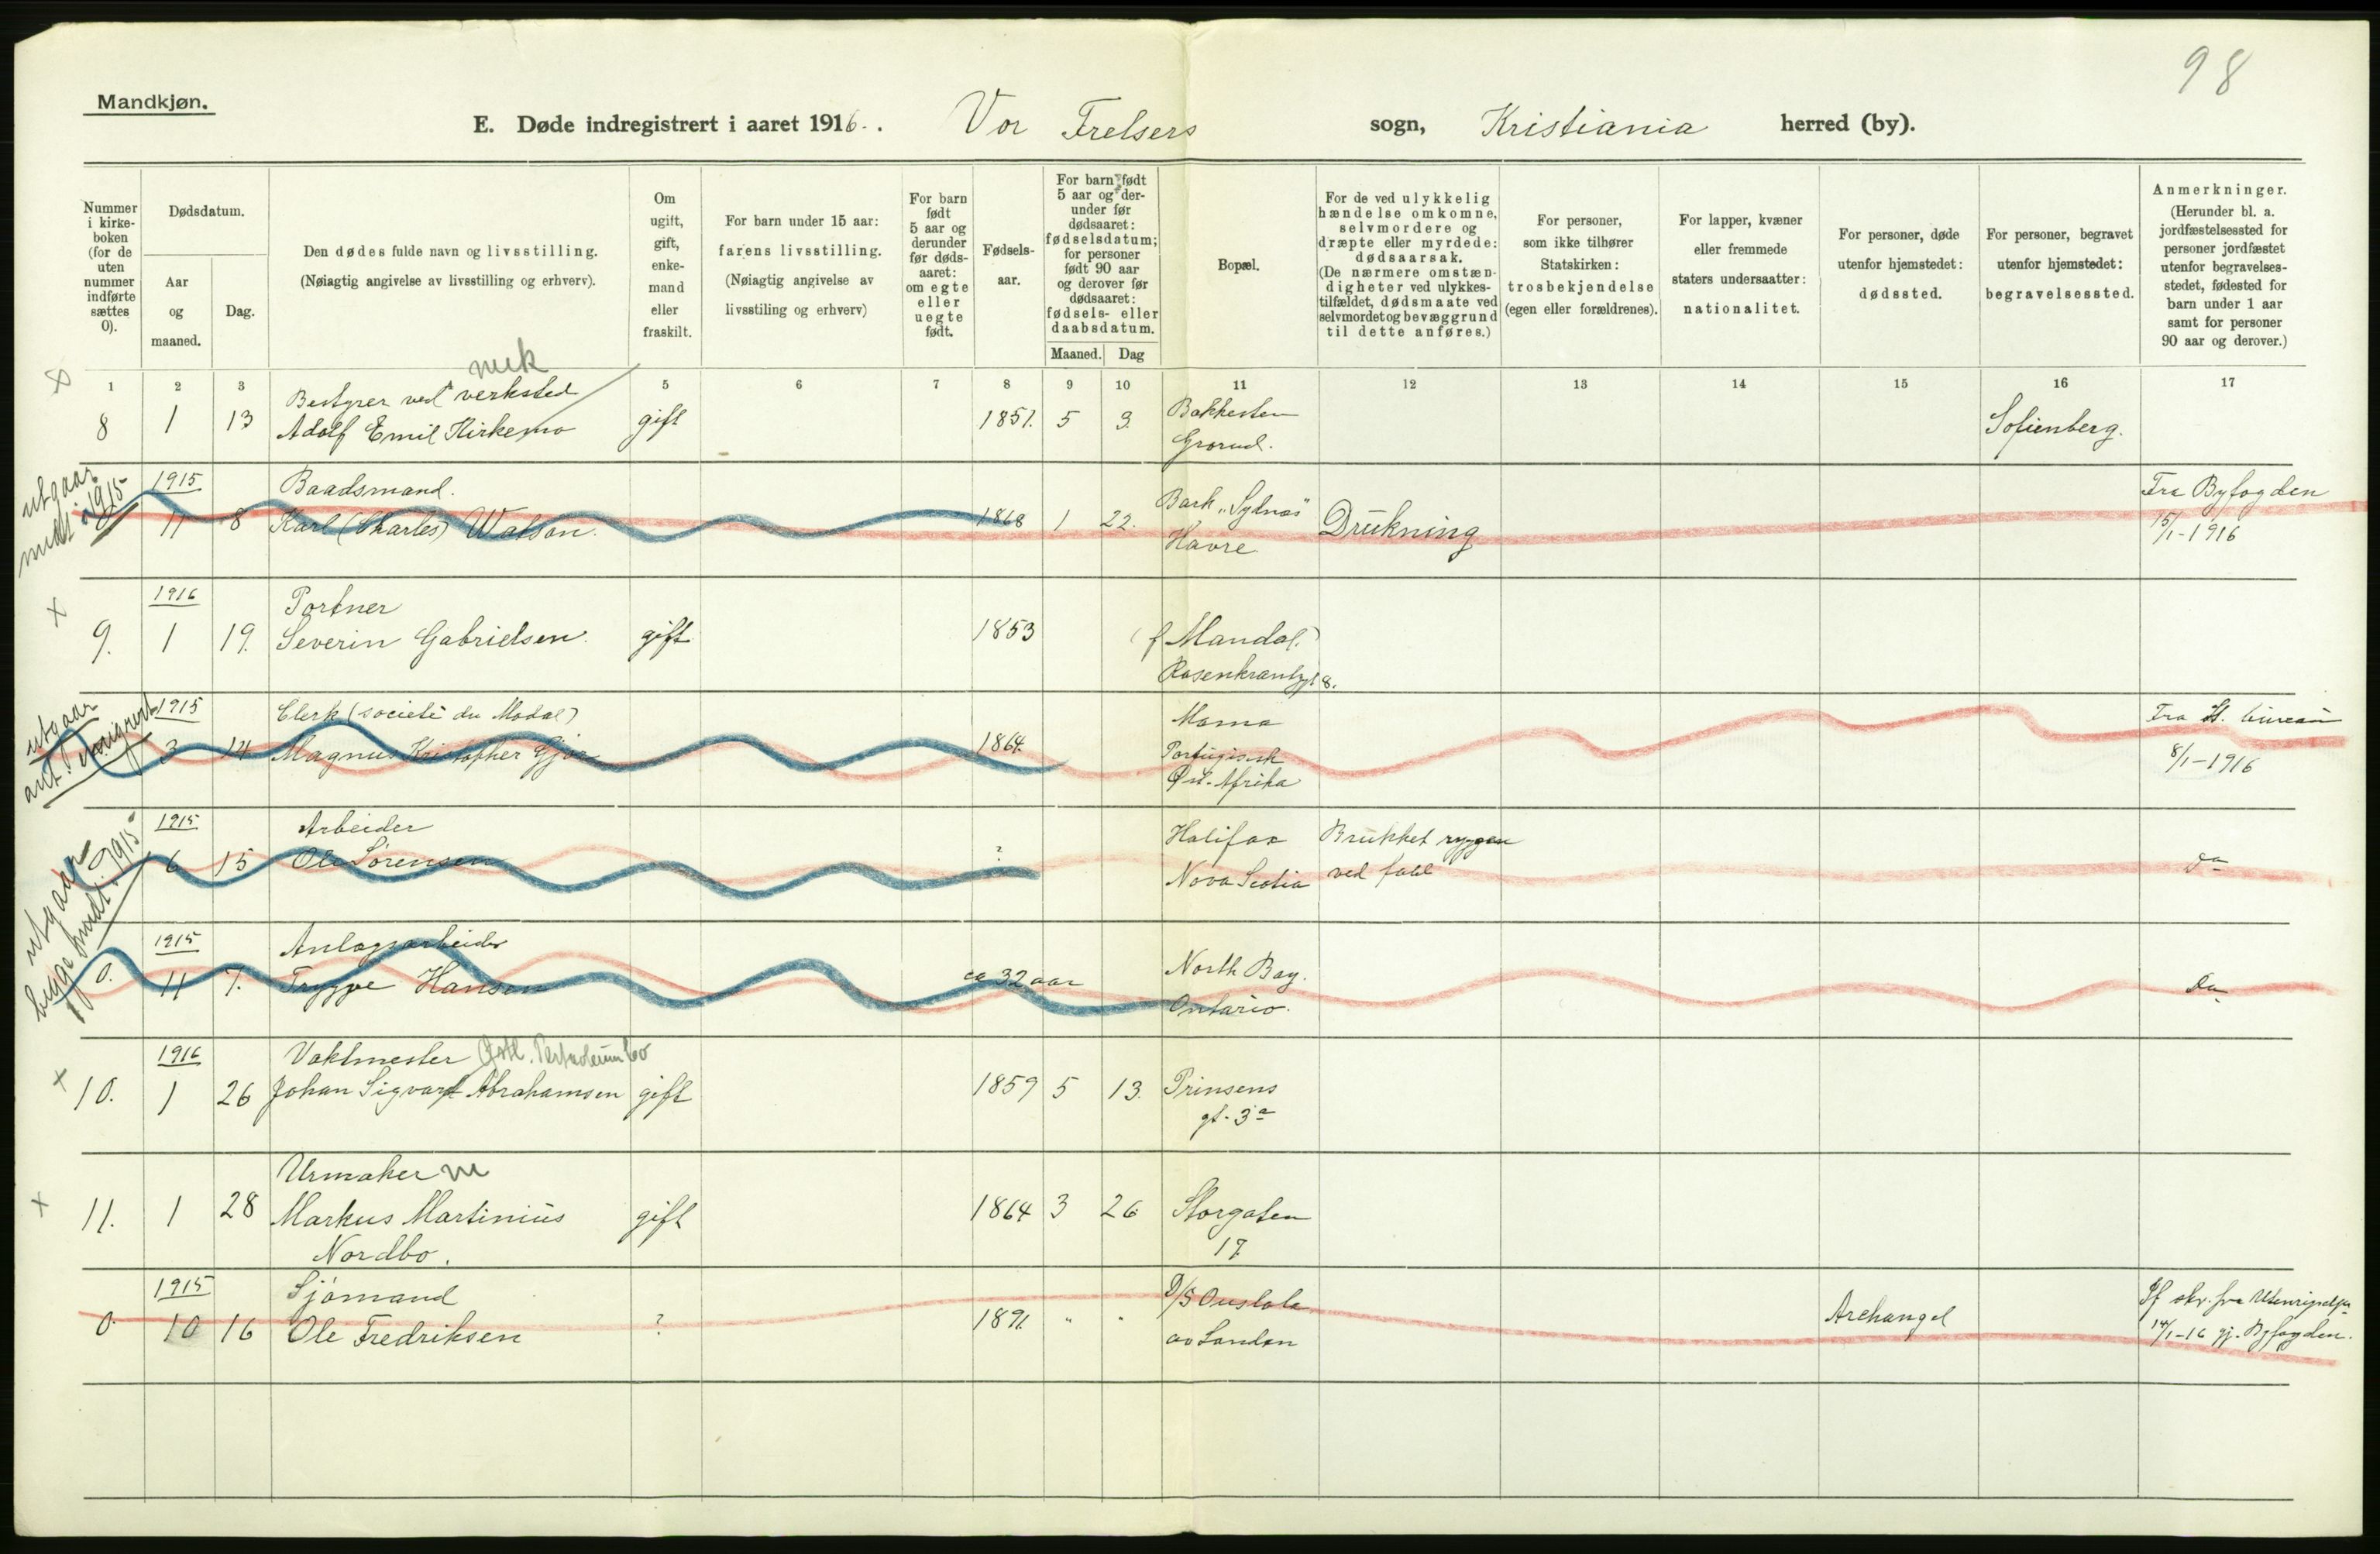 98
Mandkjøn.
E. Døde indregistrert i aaret 1916. Vor Frelsers sogn, Kristiania herred (by).
Nummer i kirke-boken (for de uten nummer indførte sættes 0).
Dødsdatum.
Aar og maaned.
Dag.
Den dødes fulde navn og livsstilling.
(Nøiagtig angivelse av livsstilling og erhverv).
Om ugift, gift, enke-mand eller fraskilt.
For barn under 15 aar: farens livsstilling.
(Nøiagtig angivelse av livsstiling og erhverv)
For barn født 5 aar og derunder før døds-aaret: om egte eller uegte født.
Fødsels-aar.
For barn født 5 aar og der-under før dødsaaret: fødselsdatum; for personer født 90 aar og derover før dødsaaret: fødsels- eller daabsdatum.
Maaned. Dag
Bopæl.
For de ved ulykkelig hændelse omkomne, selvmordere og dræpte eller myrdede: dødsaarsak.
(De nærmere omstæn-digheter ved ulykkes-tilfældet, dødsmaate ved selvmordet og bevæggrund til dette anføres.)
For personer, som ikke tilhører Statskirken: trosbekjendelse (egen eller forældrenes).
For lapper, kvæner eller fremmede staters undersaatter: nationalitet.
For personer, døde utenfor hjemstedet: dødssted.
For personer, begravet utenfor hjemstedet: begravelsessted.
Anmerkninger.
(Herunder bl. a. jordfæstelsessted for personer jordfæstet utenfor begravelses-stedet, fødested for barn under 1 aar samt for personer 90 aar og derover.)
1 2 3 5 6 7 8 9 10 11 12 13 14 15 16 17
mek
Bestyrer ved verksted
8 1 13 Adolf Emil Kirkemo gift 1851. 5 3. Bakkesten
Grorud. Sofienberg.
utgaar
medt i 1915
1915 Baadsmand.
11 8 Karl (Charles) Watson. 1868 1 22. Bark "Sylnæs"
Havre Drukning Fra Byfogden
15/1-1916
1916 Portner
9. 1 19. Severin Gabrielsen. gift 1853 (f Mandal.)
Rosenkrantzgt 8.
utgaar
ant. emigrert
1915 Clerk (societé du Modal)
3 14 Magnus Kristopher Gjør 1864.
Portugisisk
Øst-Afrika Fra St. bureau
8/1-1916
utgaar
begge medt. 1915
1915 Arbeider
6 15 Ole Sørensen ? Halifax
Nova Scotia Brukket ryggen
ved fald do
1915 Anlægsarbeider
0. 11 7. Trygve Hansen ca 32 aar North Bay.
Ontario. do
1916 Vaktmester Østl. Petroleum Co
10. 1 26 Johan Sigvard Abrahamsen gift 1859 5 13. Prinsens
gt. 3a
Urmaker m
11. 1 28 Markus Martinius gift 1864 3 26 Storgaten
Nordbo. 17
1915 Sjømand
0. 10 16 Ole Fredriksen ? 1891. " " D/S
av London Archangel
14/1-16 gj. Byfogden.